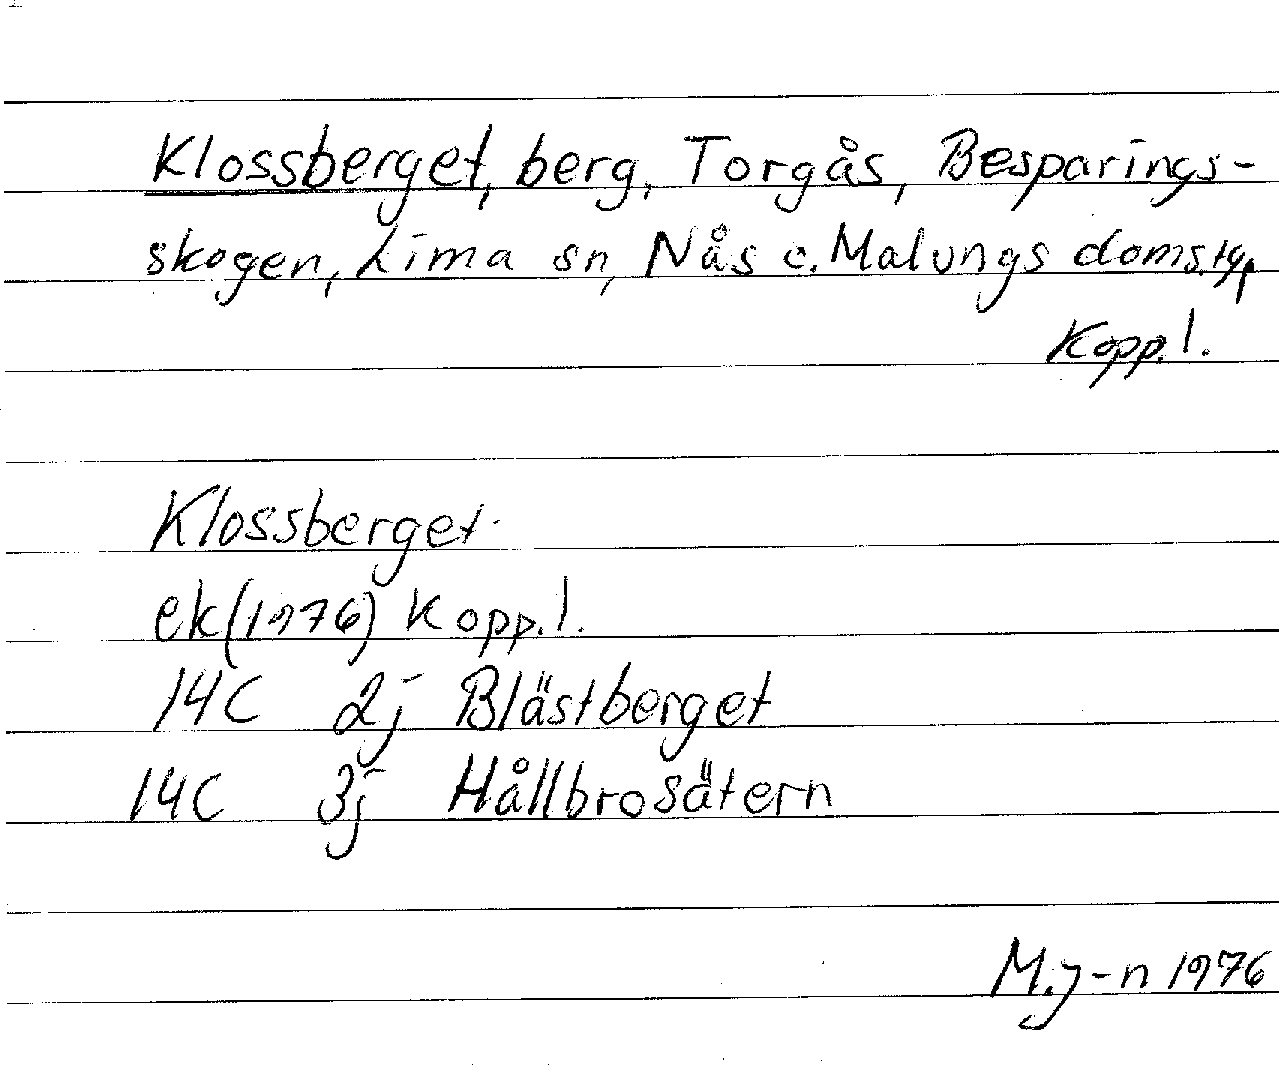 Klossberget, berg, Torgås, Besparings-
skogen, Lima sn, Nås o. Malungs doms.tg,
Kopp.l.
Klossberget
ek (1976) Kopp.l.
14C 2j Blästberget
14C 3j Hållbrosätern
M.J-n 1976